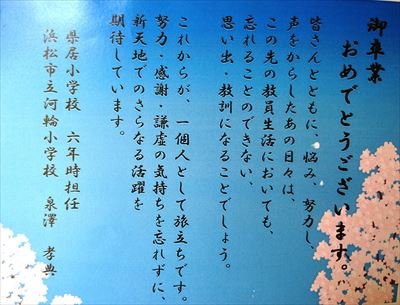 御卒業
おめでとうございます。
皆さんとともに、悩み、努力し、
声をからしたあの日々は、
この先の教員生活においても、
忘れることのできない、
思い出・教訓になることでしょう。
これからが、一個人として旅立ちです。
努力・感謝・謙虚の気持ちを忘れずに、
新天地でのさらなる活躍を
期待しています。
県居小学校　六年時担任
浜松市立河輪小学校　泉澤　孝典